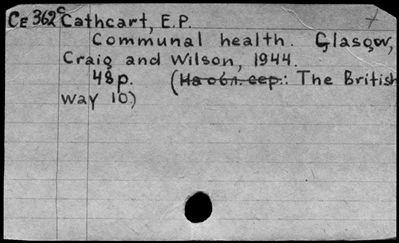 CE 362c Cathcart, E.P.
Communal health. Glasgow,
Craig and Wilson, 1944.
48 p. (На обл. сер.: The British
way 10.)